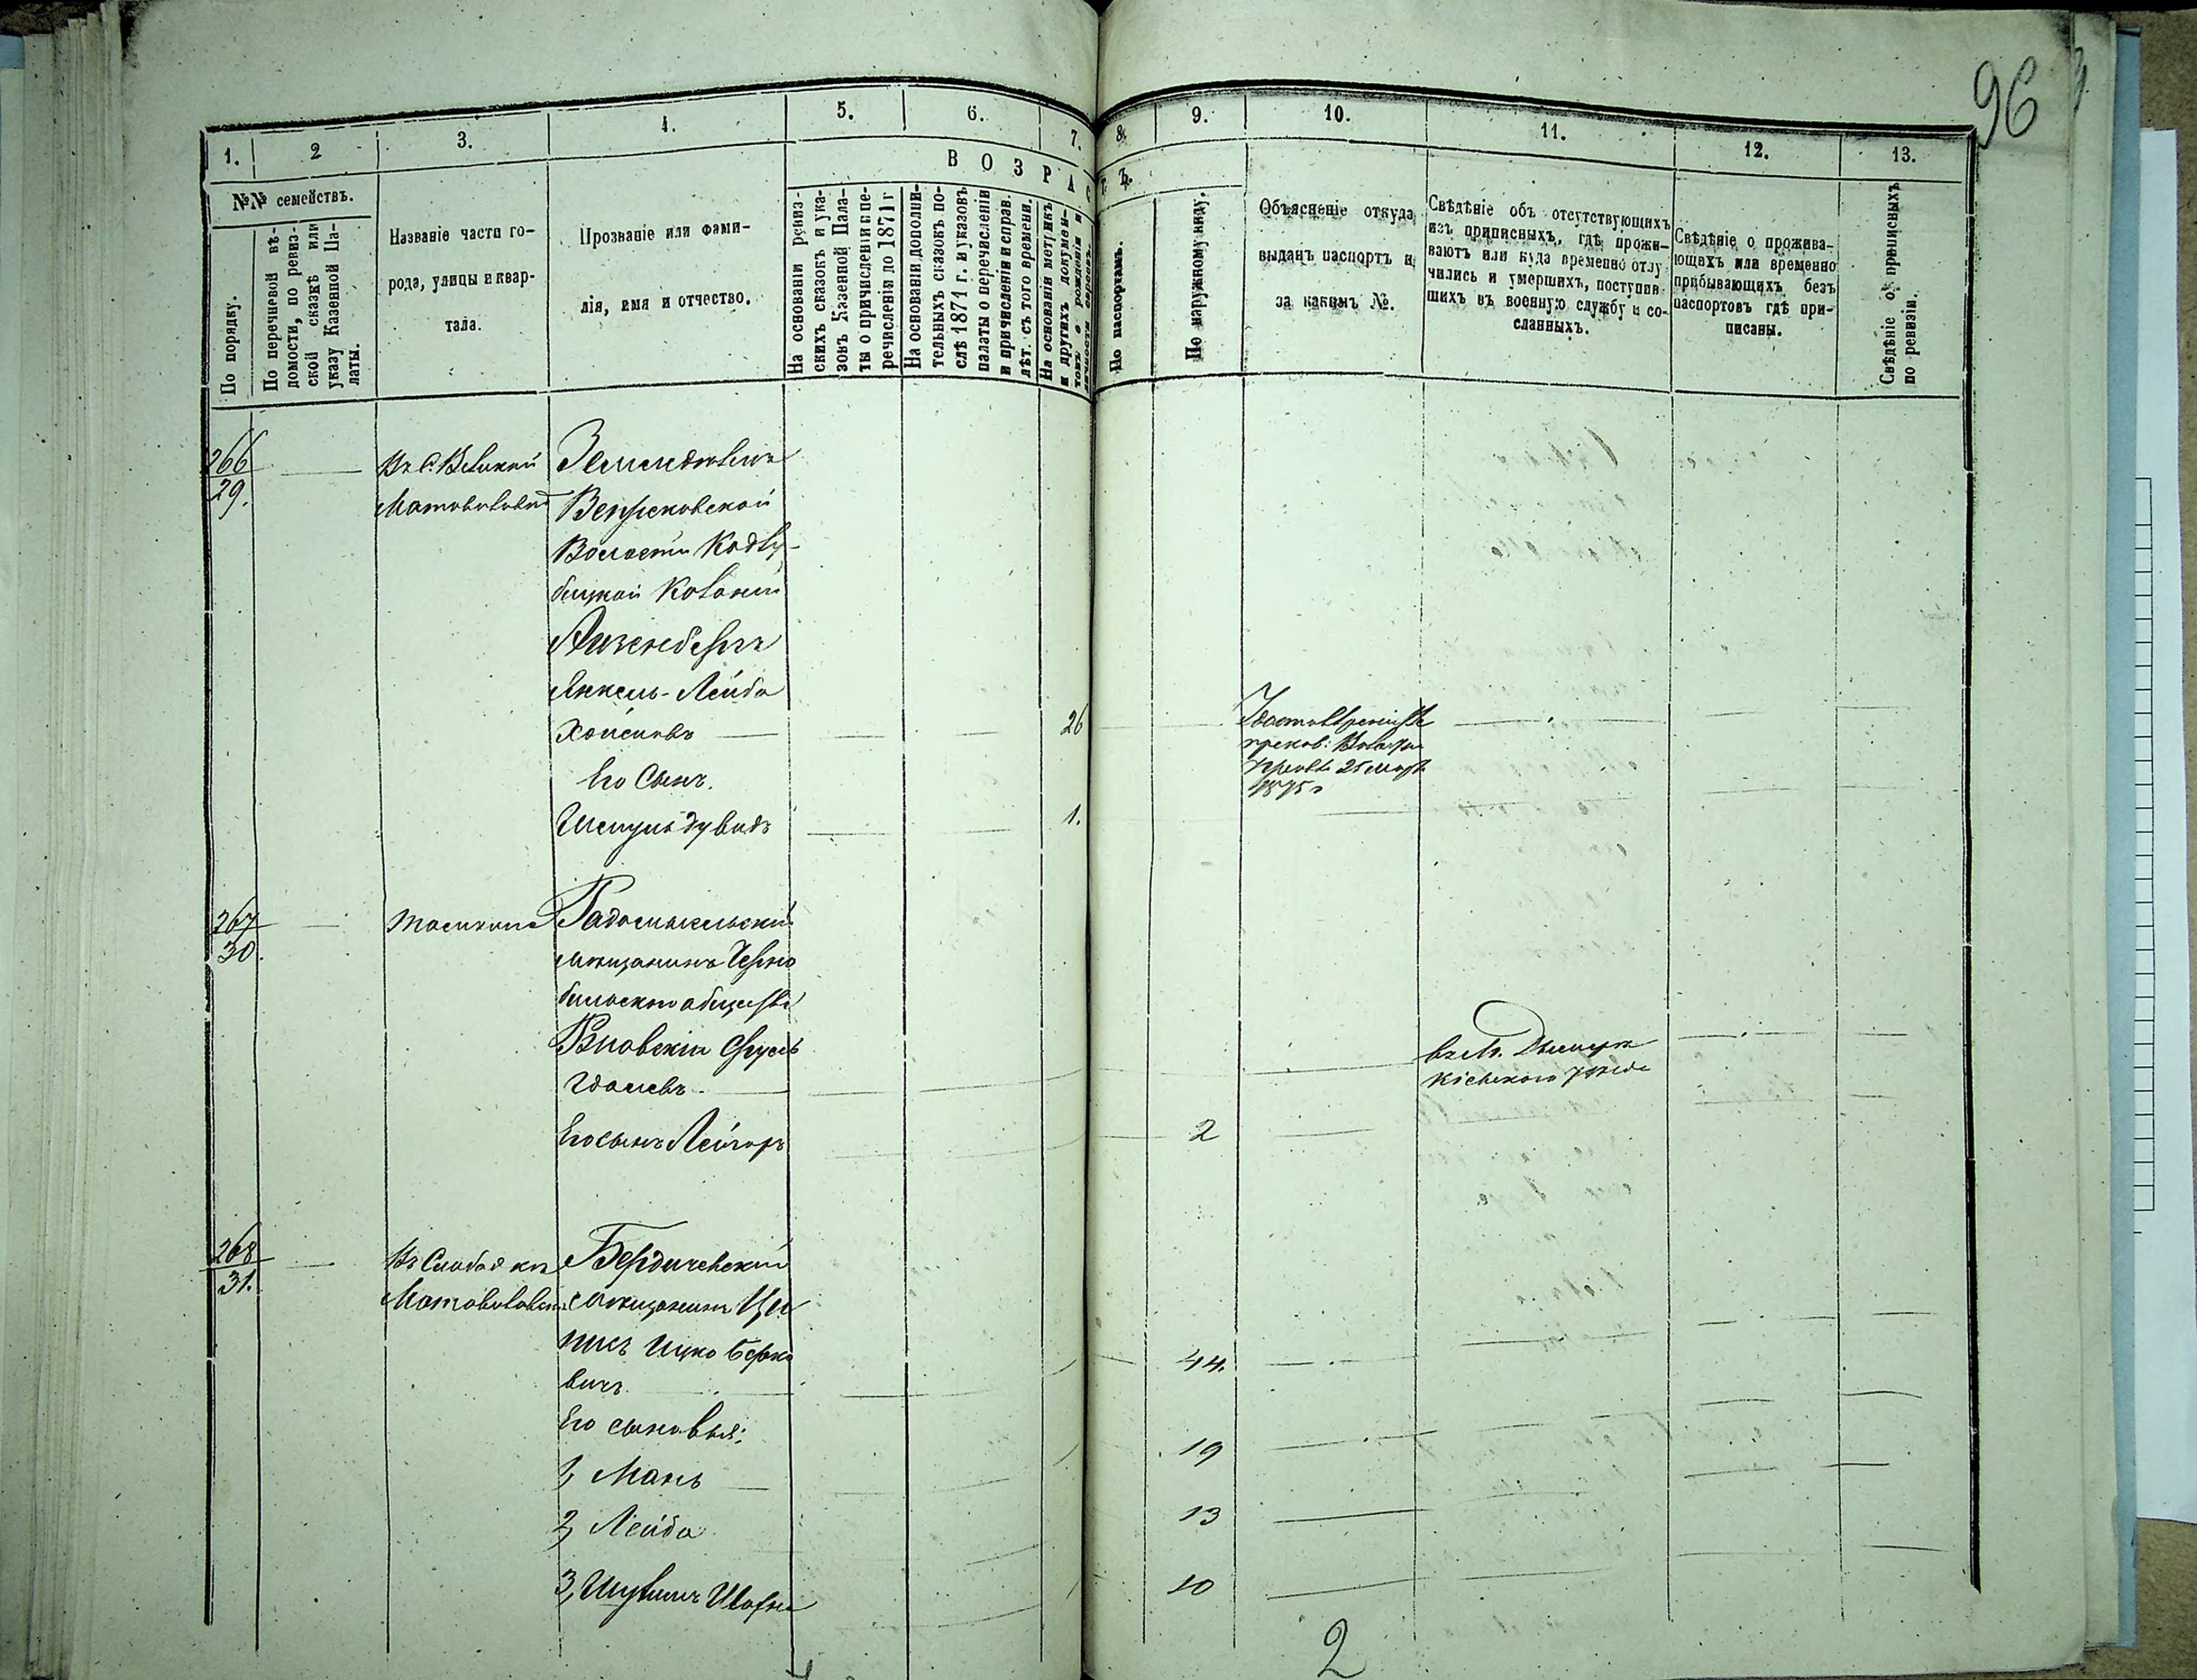 96
1.
2
3.
4.
5.
6.
7.
8.
9.
10.
11.
12.
13.
№№ семействъ.
ВОЗРАСТЪ.
По порядку.
По перечневой вѣ-
домости, по ревиз-
ской сказкѣ или
указу Казенной Па-
латы.
Названіе части го-
рода, улицы и квар-
тала.
Прозваніе или фами-
лія, имя и отчество.
На основаніи ревиз-
скихъ сказокъ и ука-
зовъ Казенной Пала-
ты о причисленіи и пе-
речисленіи до 1871 г
На основаніи дополни-
тельныхъ сказокъ по-
слѣ 1871 г. и указовъ
палаты о перечисленіи
и причисленіи и справ.
лѣт. съ того времени.
На основаніи метрикъ
и другихъ докумен-
товъ о рожденіи и
По паспортамъ.
По наружному виду.
Объясненіе откуда
выданъ паспортъ и
за какимъ №.
Свѣдѣніе объ отсутствующихъ
изъ приписныхъ, гдѣ прожи-
ваютъ или куда временно отлу-
чились и умершихъ, поступив-
шихъ въ военную службу и со-
сланныхъ.
Свѣдѣніе о прожива-
ющихъ или временно
прибывающихъ безъ
паспортовъ гдѣ при-
писаны.
Свѣдѣніе о приписныхъ
по ревизіи.
266
29.
Въ С. Великой
Мотовиловкѣ
Земледѣлецъ
Веприковской
Волости Кодлу-
бицкой Колоніи
Айзенбергъ
Янкель-Лейба
Хаимовъ
26
Его Сынъ.
Шмуль Дувидъ
1.
25 мар
1875 г
267
30.
Тоже
Радомысльскій
мѣщанинъ Черно
быльскаго общества
Сруль
Его сынъ Лейзоръ
2
въ м. Дымеръ
Кіевскаго уѣзда
268
31.
Въ Слободкѣ
Мотовиловск
Бердичевскій
мѣщанинъ Ци
Ицко Берко
вичъ
44.
Его сыновья:
1, Мань
19
2, Лейба
13
3,
10
2